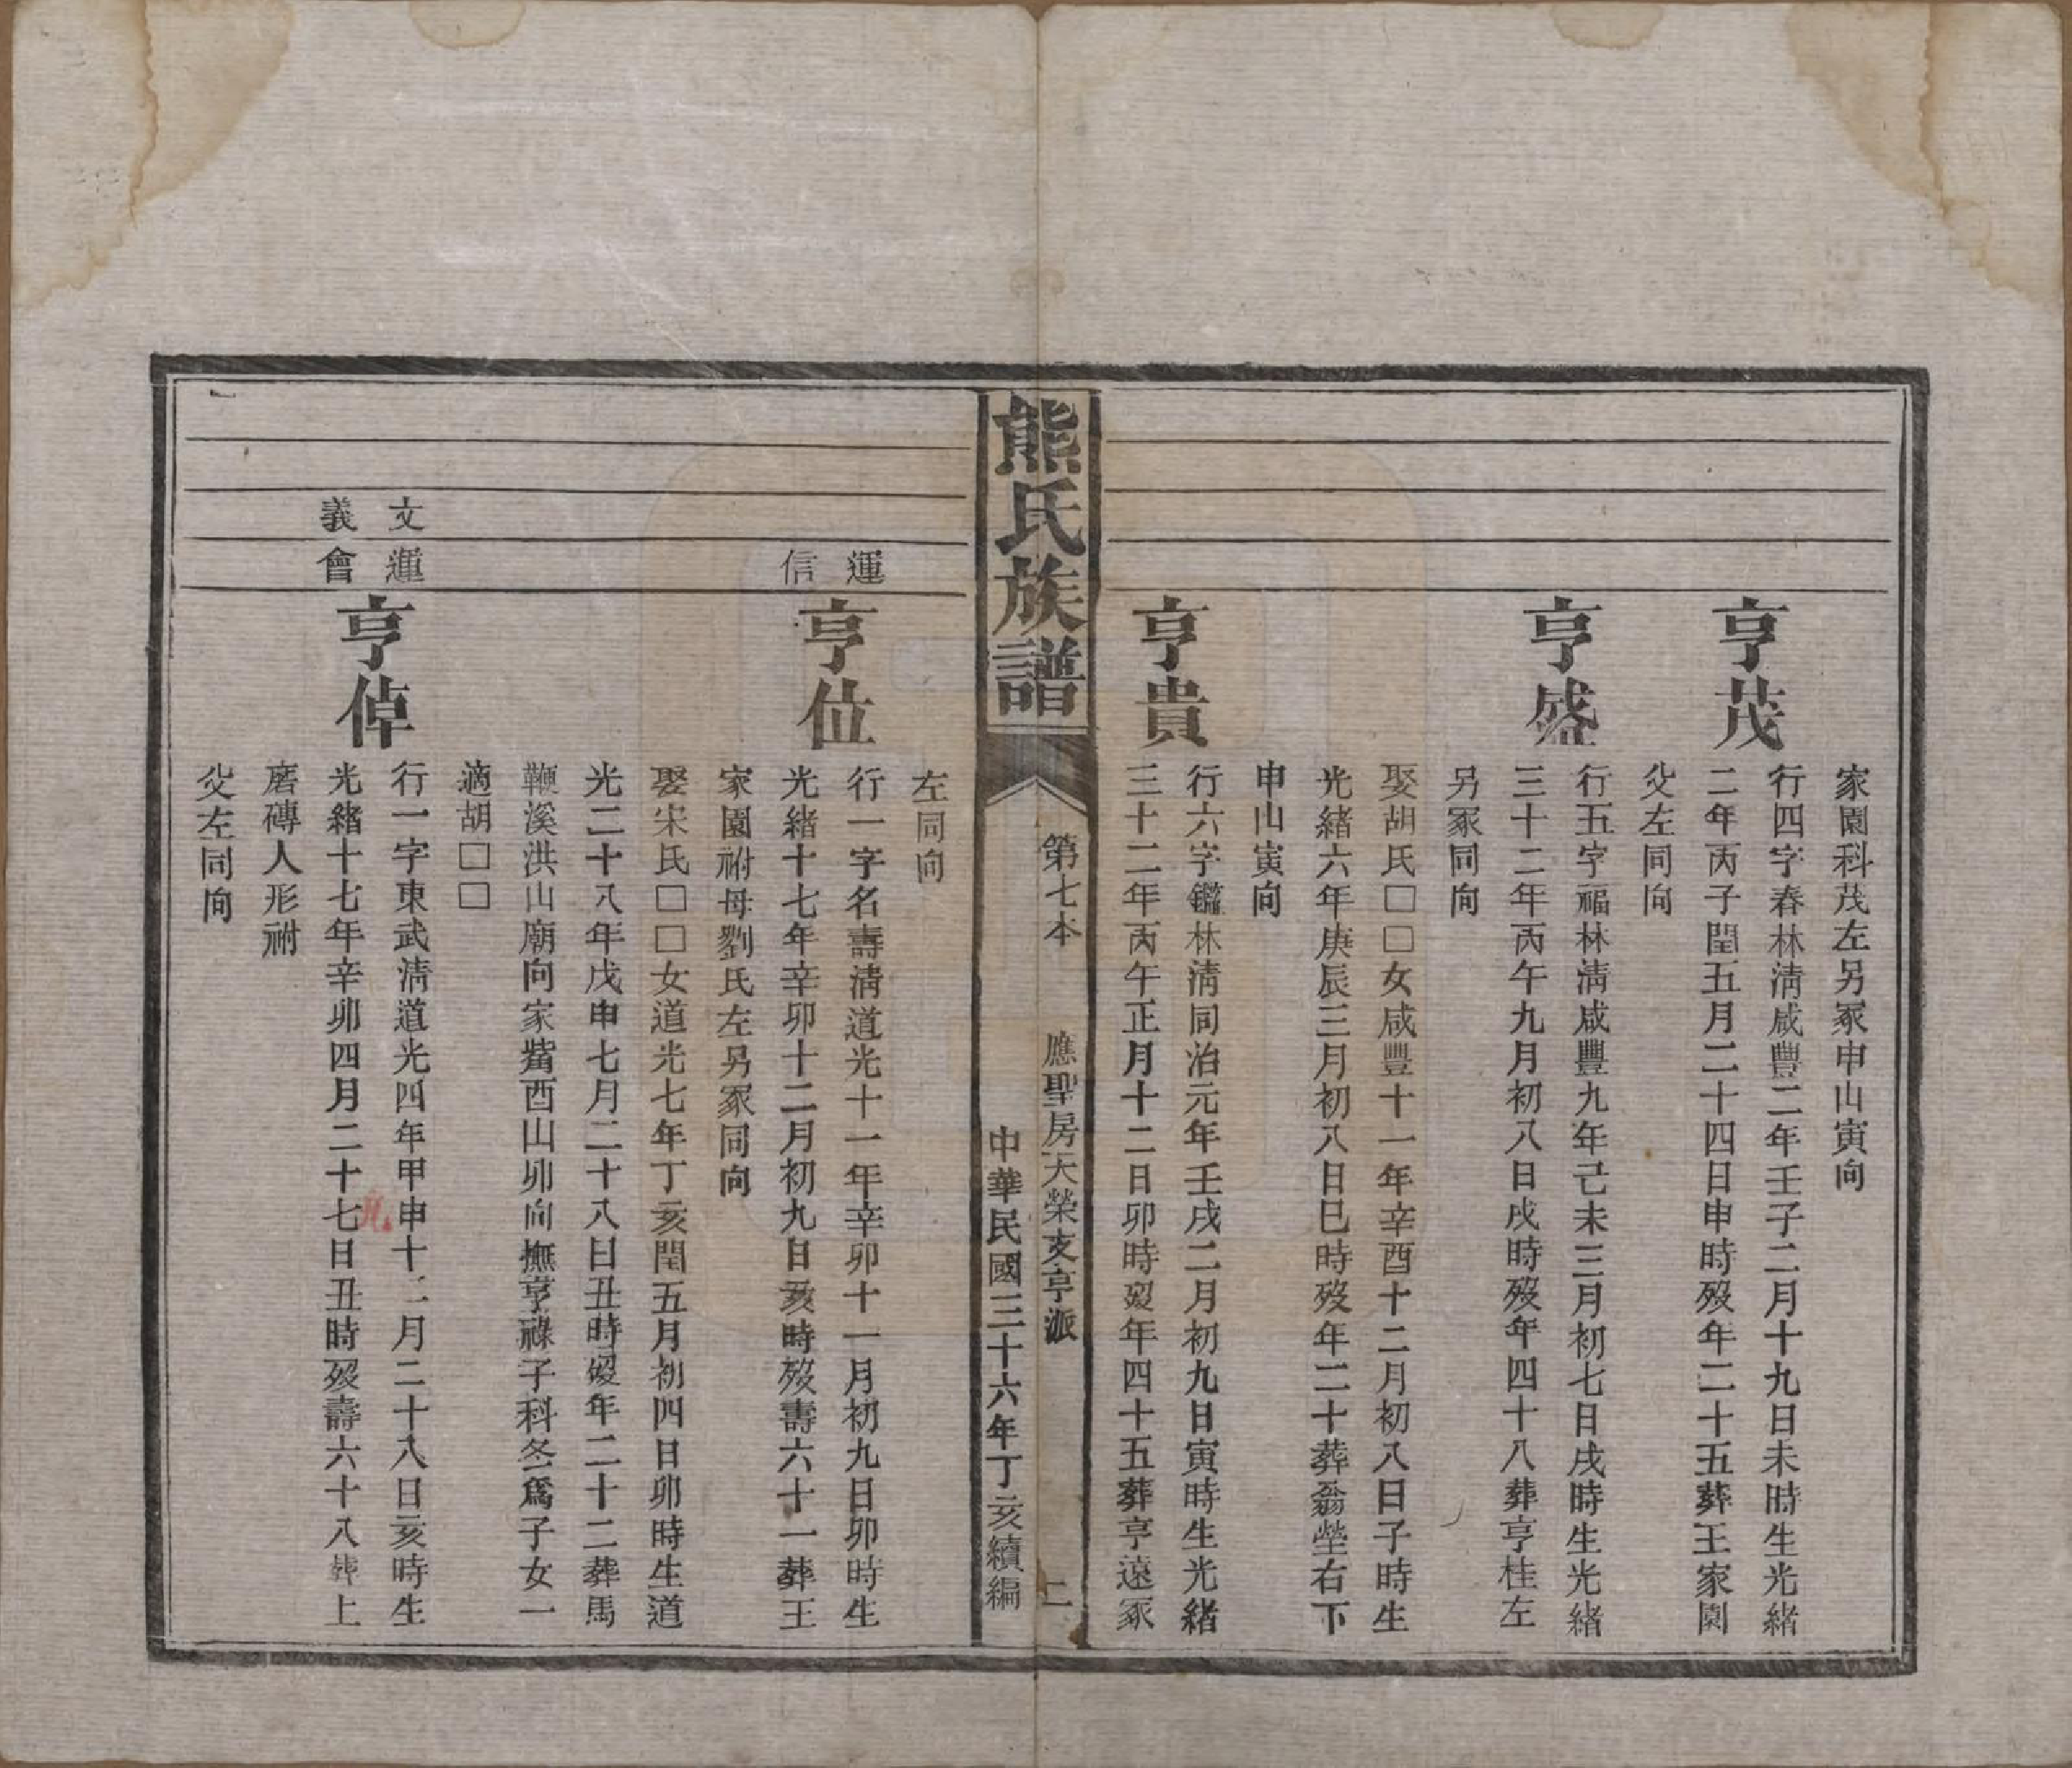 家園科茂左另冢申山寅向
亨茂
行四字春林淸咸豐二年壬子二月十九日未時生光緖
二年丙子閏五月二十四日申時歿年二十五葬王家園
父左同向
亨盛
行五字福林淸咸豐九年己未三月初七日戌時生光緖
三十二年丙午九月初八日戌時歿年四十八葬亨桂左
另冢同向
娶胡氏□□女咸豐十一年辛酉十二月初八日子時生
光緖六年庚辰三月初八日巳時歿年二十葬翁塋右下
申山寅向
亨貴
行六字鑑林淸同治元年壬戌二月初九日寅時生光緖
三十二年丙午正月十二日卯時歿年四十五葬亨遠冢
熊氏族譜
第七本
應聖房天榮支亨派
二
中華民國三十六年丁亥續編
左同向
運
信
亨位
行一字名壽淸道光十一年辛卯十一月初九日卯時生
光緖十七年辛卯十二月初九日亥時歿壽六十一葬王
家園祔母劉氏左另冢同向
娶宋氏□□女道光七年丁亥閏五月初四日卯時生道
光二十八年戊申七月二十八日丑時歿年二十二葬馬
鞭溪洪山廟向家觜酉山卯向撫亨祿子科冬爲子女一
適胡□□
文運
義會
亨倬
行一字東武淸道光四年甲申十二月二十八日亥時生
光緖十七年辛卯四月二十七日丑時歿壽六十八葬上
磨磚人形祔
父左同向